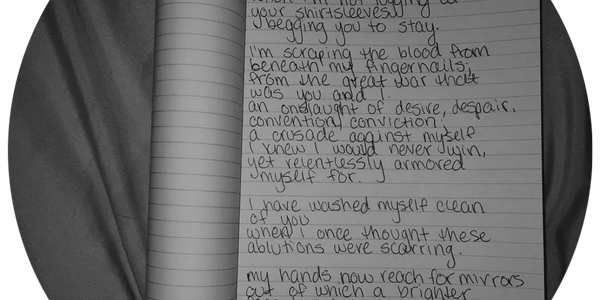 when I'm not tugging at
your shirtsleeves
begging you to stay.
I'm scraping the blood from
beneath my fingernails;
from the great war that
was you and I.
an onslaught of desire, despair,
convention, conviction;
a crusade against myself
I knew I would never win,
yet relentlessly armored
myself for.
I have washed myself clean
of you
when I once thought these
ablutions were scarring.
my hands now reach for mirrors
out of which a brighter